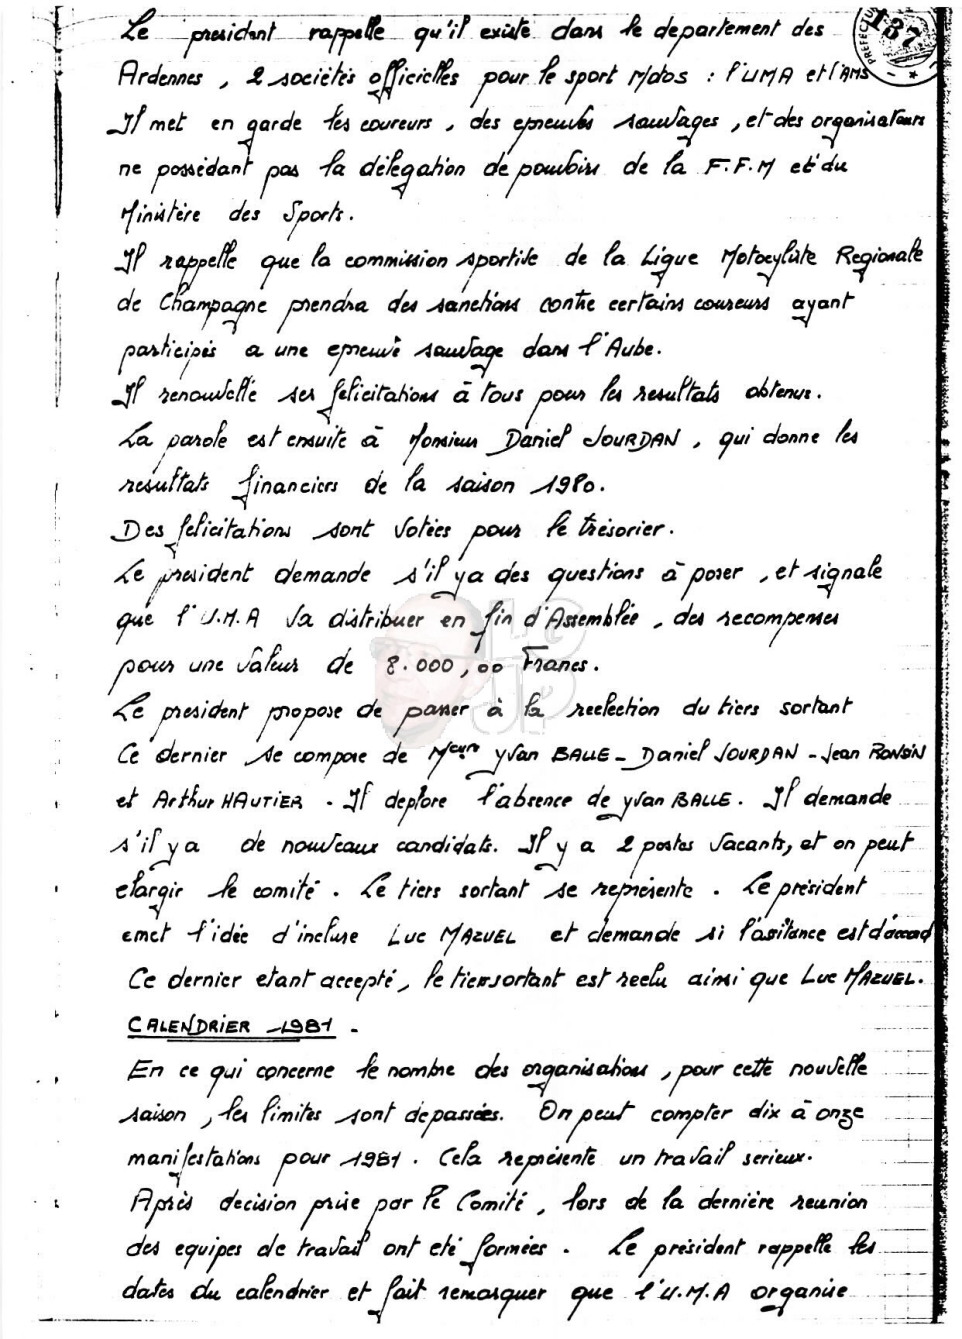 Le president rappelle qu'il existe dans le departement des
Ardennes, 2 sociétés officielles pour le sport Motos : l'UMA et l'AMS
Il met en garde les coureurs, des epreuves sauvages, et des organisateurs
ne possédant pas la délégation de pouvoirs de la F.F.M et du
Ministère des Sports.
Il rappelle que la commission sportive de la Ligue Motocyliste Regionale
de Champagne prendra des sanctions contre certains coureurs ayant
participés a une epreuve sauvage dans l'Aube.
Il renouvelle ses felicitations à tous pour les resultats obtenus.
La parole est ensuite à Monsieur Daniel JOURDAN, qui donne les
resultats financiers de la saison 1980.
Des felicitations sont votées pour le trésorier.
Le president demande s'il y a des questions à poser, et signale
que l'U.M.A va distribuer en fin d'Assemblée, des recompenses
pour une valeur de 8.000,00 Francs.
Le president propose de passer à la reelection du tiers sortant
Ce dernier se compose de Mrs Yvan BALLE - Daniel JOURDAN - Jean RONSIN
et Arthur HAUTIER. Il deplore l'absence de Yvan BALLE. Il demande
s'il y a de nouveaux candidats. Il y a 2 postes vacants, et on peut
elargir le comité. Le tiers sortant se représente. Le président
emet l'idée d'inclure Luc MAZUEL et demande si l'assitance est d'accord
Ce dernier etant accepté, le tiers sortant est reelu ainsi que Luc MAZUEL.
CALENDRIER 1981.
En ce qui concerne le nombre des organisations, pour cette nouvelle
saison, les limites sont depassées. On peut compter dix à onze
manifestations pour 1981. Cela représente un travail serieux.
Après decision prise par le Comité, lors de la dernière reunion
des equipes de travail ont eté formées. Le président rappelle les
dates du calendrier et fait remarquer que l'U.M.A organise
137